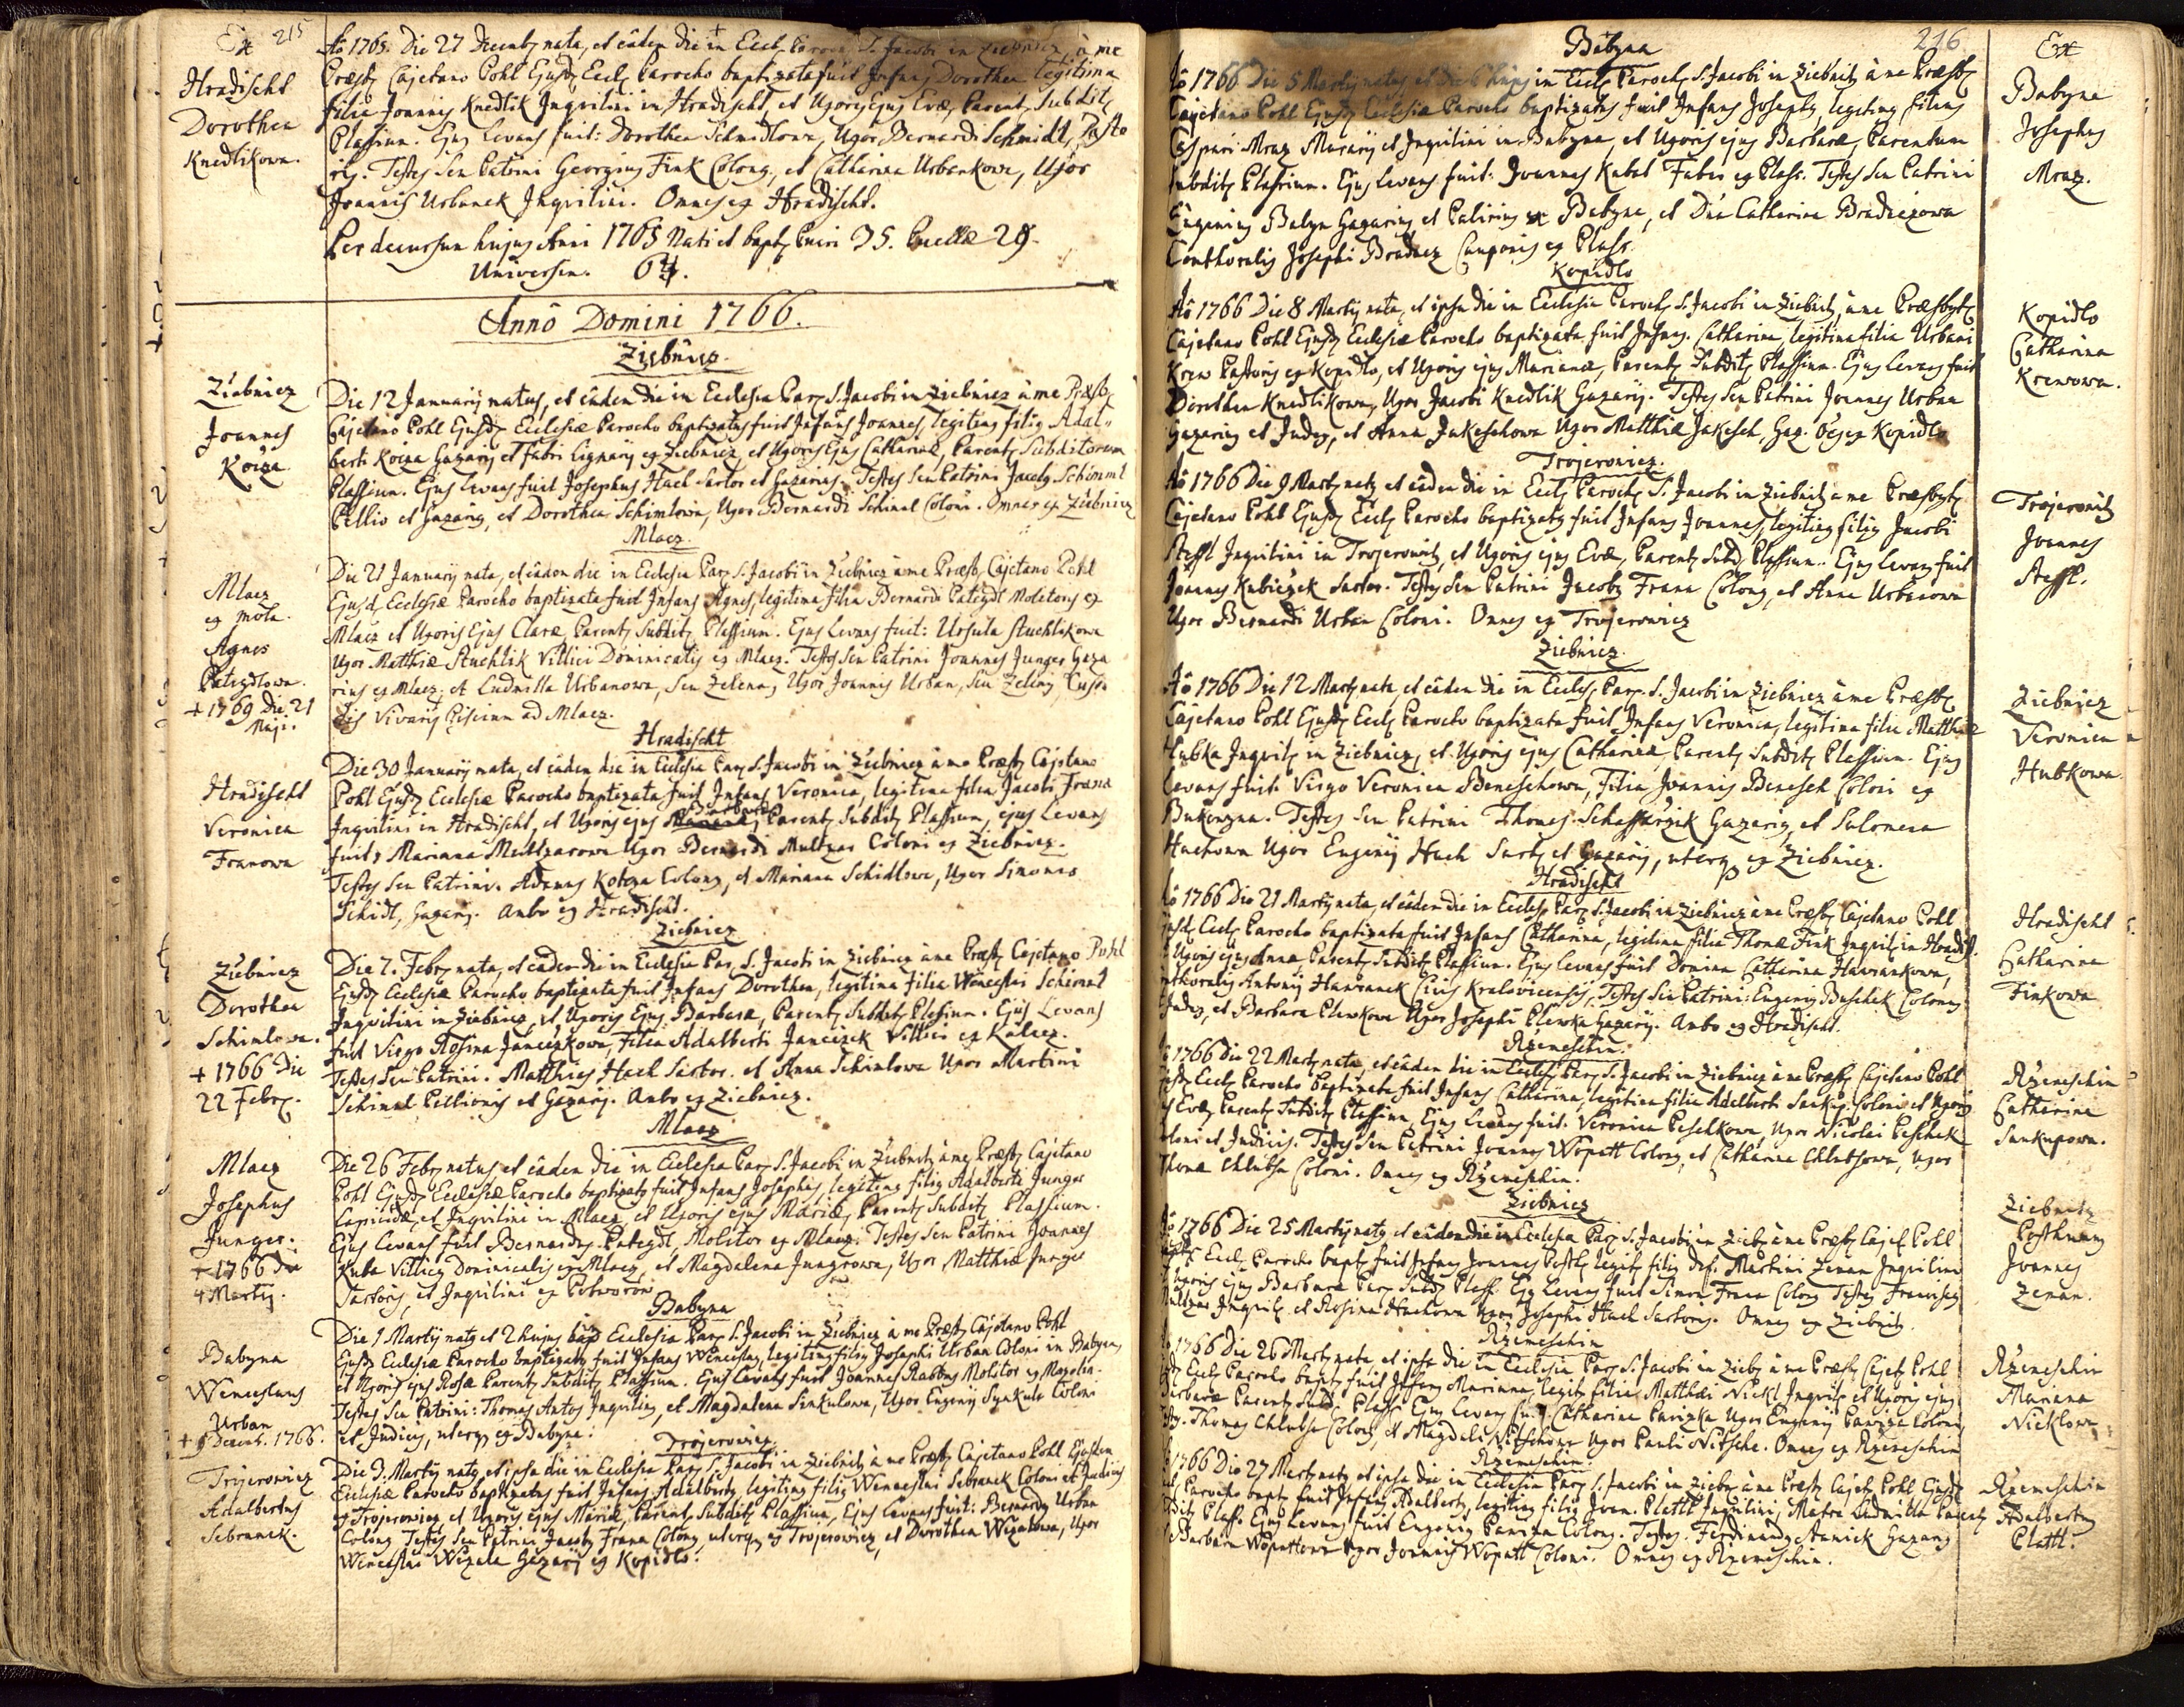 215
Ex
Hradischt
Dorothea
Knedlikowa.
Aõ 1765. Die 27 Decemb nata, et eâdem die in Eccl. Paroch. S. Jacobi in Ziebnicz, à me
Præsb. Cajetano Pohl Ejusd. Eccl. Parocho baptizata fuit Infans Dorothea legitima
filia Joannis Knedlik Inquilini in Hradischt, et Uxoris Ejus Evæ, Parent. Subdit.
Plassium. Ejus Levans fuit: Dorothea Schmidtowa, Uxor Bernardi Schmidt, Pasto
ris. Testes seu Patrini Georgius Fink Colonus, et Catharina Urbankowa, Uxor
Joannis Urbanek Inquilini. Omnes ex Hradischt.
Per decursum hujus Anni 1765 Nati et bapt. Pueri 35. Puellæ 29.
Universim. 64.
Annô Domini 1766.
Ziebnicz.
Ziebnicz
Joannes
Koiza
Die 12 Januarij natus, et eâdem die in Ecclesia Par. S. Jacobi in Ziebnicz à me Præsb.
Cajetano Pohl Ejusd. Ecclesiæ Parocho baptizatus fuit Infans Joannes, legitimus filius Adal„
berti Koiza Gazarij et Fabri Lignarij ex Ziebnicz, et Uxoris Ejus Catharinæ, Parent. Subditorum
Plassium. Ejus Levans fuit Josephus Hach Sartor et Gazarius. Testes seu Patrini Jacobus Schimml
Pellio et Gazarius, et Dorothea Schimlowa, Uxor Bernardi Schimel Coloni. Omnes ex Ziebnicz
Mlacz.
Mlacz
ex mola.
Agnes
Pateydlowa.
+ 1769 Die 21
Maji.
Die 21 Januarij nata, et eâdem die in Ecclesia Par. S. Jacobi in Ziebnicz à me Præsb. Cajetano Pohl
Ejusd. Ecclesiæ Parocho baptizata fuit Infans Agnes, legitima filia Bernardi Pateydl Molitoris ex
Mlacz et Uxoris Ejus Claræ, Parent. Subdit. Plassium. Ejus Levans fuit: Ursula Stuchlikowa
Uxor Matthiæ Stuchlik Villici Dominicalis ex Mlacz. Testes seu Patrini Joannes Junger Gaza
rius ex Mlacz, et Ludmilla Urbanowa, seu Zelena, Uxor Joannis Urban, seu Zeleny, Custo
dis Vivarij Piscium ad Mlacz.
Hradischt
Hradischt
Veronica
Franowa
Die 30 Januarij nata, et eâdem die in Ecclesia Par. S. Jacobi in Ziebnicz à me Præsb. Cajetano
Pohl Ejusd. Ecclesiæ Parocho baptizata fuit Infans Veronica, legitima filia Jacobi Frana
Inquilini in Hradischt, et Uxoris ejus Barbaræ, Parent. Subdit. Plassium, ejus Levans
fuit, Marianna Multzarowa Uxor Bernardi Multzar Coloni ex Ziebnicz.
Testes seu Patrini. Adamus Kotoza Colonus, et Mariana Schidlowa, Uxor Simonis
Schidl, Gazarij. Ambo ex Hradischt.
Ziebnicz
Ziebnicz
Dorothea
Schimlowa.
+ 1766 Die
22 Febr.
Die 7. Febr. nata, et eâdem die in Ecclesia Par. S. Jacobi in Ziebnicz à me Præsb. Cajetano Pohl
Ejusd. Ecclesiæ Parocho baptizata fuit Infans Dorothea, legitima filia Wenceslai Schimel
Inquilini in Ziebnicz, et Uxoris Ejus Barbaræ, Parent. Subdit. Plassium. Ejus Levans
fuit Virgo Rosina Janczikowa, Filia Adalberti Janczick Villici ex Kalacz.
Testes seu Patrini. Matthias Hach Sartor. et Anna Schimlowa Uxor Martini
Schimel Pellionis et Gazarij. Ambo ex Ziebnicz.
Mlacz
Mlacz
Josephus
Junger.
+ 1766 Die
4 Martij.
Die 26 Febr. natus, et eâdem die in Ecclesia Par. S. Jacobi in Ziebnitz à me Præsb. Cajetano
Pohl Ejusd. Ecclesiæ Parocho baptizatus fuit Infans Josephus, legitimus filius Adalberti Junger
Lapicidæ, et Inquilini in Mlacz, et Uxoris ejus Mariæ, Parent. Subdit. Plassium.
Ejus Levans fuit Bernardus Pateydl, Molitor ex Mlacz. Testes seu Patrini Joannes
Kuba Villicus Dominicalis ex Mlacz, et Magdalena Jungrowa, Uxor Matthiæ Junger
Sartoris, et Inquilini ex Potworow.
Babyna
Babyna
Wenceslaus
Urban
+ 9 Decemb. 1766.
Die 1 Martij natus et 2 hujus in Ecclesia Par. S. Jacobi in Ziebnicz à me Præsb. Cajetano Pohl
Ejusd. Ecclesiæ Parocho baptizatus fuit Infans Wenceslaus, legitimus filius Josephi Urban Coloni in Babyna,
et Uxoris ejus Rosæ Parent. Subdit. Plassium. Ejus Levans fuit Joannes Rabbus Molitor ex Mozolin.
Testes seu Patrini: Thomas Antos Inquilinus, et Magdalena Sinkulowa, Uxor Eugenij Synkule Coloni
et Judicis, uterq. ex Babyna.
Trojerowicz.
Trojerowicz
Adalbertus
Sebranek.
Die 3. Martij natus, et ipsa die in Ecclesia Par. S. Jacobi in Ziebnitz à me Præsb. Cajetano Pohl Ejusdem
Ecclesiæ Parocho baptizatus fuit Infans Adalbertus, legitimus filius Wenceslai Sebranek Coloni et Judicis
ex Trojerowicz, et Uxoris ejus Mariæ, Parent. Subdit. Plassium, Ejus Levans fuit: Bernardus Urban
Colonus Testes seu Patrini Jacobus Frana Colonus, uterq. ex Trojerowicz, et Dorothea Wizalowa, Uxor
Wenceslai Wizala Gazarij ex Kopidlo.
216
Babyna
Ex
Babyna
Josephus
Mraz.
Aõ 1766 Die 5 Martij natus, et die 6 hujus in Eccl. Paroch. S. Jacobi in Ziebnitz à me Præsb.
Cajetano Pohl Ejusd. Ecclesiæ Parocho baptizatus fuit Infans Josephus, legitimus filius
Caspari Mraz Murarij et Inquilini in Babyna, et Uxoris ejus Barbaræ, Parentum
subdit. Plassium. Ejus Levans fuit: Joannes Kabat Faber ex Plass. Testes seu Patrini
Eugenius Balyn Gazarius, et Patririus ex Babyna, et Dña Catharina Bradaczowa
Conthoralis Josephi Bradacz Cauponis ex Plass.
Kopidlo
Kopidlo
Catharina
Krewowa.
Aõ 1766 Die 8 Martij nata, et ipsa die in Ecclesia Paroch. S. Jacobi in Ziebnitz, à me Præsbyt.
Cajetano Pohl Ejusd. Ecclesiæ Parocho baptizata fuit Infans. Catharina, legitima filia Urbani
Krew Pastoris ex Kopidlo, et Uxoris ejus Marianæ, Parent. Subdit. Plassium. Ejus Levans fuit
Dorothea Knedlikowa, Uxor Jacobi Knedlik Gazarij. Testes seu Patrini Joannes Urban
Gazarius et Judex, et Anna Jakeschowa Uxor Matthiæ Jakesch, Gaz. Oēs ex Kopidlo
Trojerowicz.
Trojerowitz
Joannes
Steffl.
Aõ 1766 Die 9 Martij natus et eâdem die in Eccl. Paroch. S. Jacobi in Ziebnitz à me Præsbyt.
Cajetano Pohl Ejusd. Eccl. Parocho baptizatus fuit Infans Joannes, legitimus filius Jacobi
Steffl Inquilini in Trojerowitz, et Uxoris ejus Evæ, Parent. Subd. Plassium. Ejus Levans fuit
Joannes Kubiczek Sartor. Testes seu Patrini Jacobus Frana Colonus, et Anna Urbanowa
Uxor Bernardi Urban Coloni. Omnes ex Trojerowicz
Ziebnicz.
Ziebnicz
Veronica
Hubkowa
Aõ 1766 Die 12 Martij nata, et eâdem die in Eccles. Par. S. Jacobi in Ziebnicz à me Præsb.
Cajetano Pohl Ejusd. Eccl. Parocho baptizata fuit Infans Veronica, legitima filia Matthiæ
Hubka Inquil. in Ziebnicz, et Uxoris ejus Catharinæ Parent. Subdit. Plassium. Ejus
Levans fuit. Virgo Veronica Beneschowa, Filia Joannis Benesch Coloni ex
Bukowyna. Testes seu Patrini Thomas Schaffarzik Gazarius, et Salomena
Hachowa Uxor Eugenij Hach Sart. et Gazarij, uterq. ex Ziebnicz.
Hradischt
Hradischt
Catharina
Finkowa
Aõ 1766 Die 21 Martij nata, et eâdem die in Eccles. Par. S. Jacobi in Ziebnicz à me Præsb. Cajetano Pohl
Ejusd. Eccl. Parocho baptizata fuit Infans Catharina, legitima filia Thomæ Fink Inquil. in Hradisch.
et Uxoris ejus Annæ Parent. Subdit. Plassium. Ejus Levans fuit Domina Catharina Hawrankowa,
Conthoralis Antonij Hawranek Civis Kralovicensis, Testes seu Patrini: Eugenius Buschek Colonus
Judex, et Barbara Plewkowa Uxor Josephi Plewka Gazarij. Ambo ex Hradischt.
Rzemeschin.
Rzemeschin
Catharina
Sankupowa.
Aõ 1766 Die 22 Martij nata, et eâdem die in Eccles. Par. S. Jacobi in Ziebnicz à me Præsb. Cajetano Pohl
Ejusd. Eccl. Parocho baptizata fuit Infans Catharina, legitima filia Adalberti Sankup Coloni et Uxoris
ejus Evæ, Parent. Subdit. Plassium, Ejus Levans fuit. Veronica Peschkowa, Uxor Nicolai Peschek
Coloni et Judicis. Testes seu Patrini Joannes Wopatt Colonus, et Catharina Chlubsowa, Uxor
Thomæ Chlubsa Coloni. Omnes ex Rzemeschin.
Ziebnicz
Ziebnitz
Posthumus
Joannes
Zeman.
Aõ 1766 Die 25 Martij natus, et eâdem die in Ecclesia Par. S. Jacobi in Zieb. à me Præsb. Cajet. Pohl
Ejusd. Eccl. Parocho bapt. fuit Infans Joannes Posth. legit. filius def. Martini Zeman Inquilini
et Uxoris ejus Barbaræ Par. Subd. Plass. Ejus Levans fuit Simon Frana Colonus Testes Franciscus
Multzar Inquil. et Rosina Hachowa Uxor Josephi Hach Sartoris. Omnes ex Ziebnitz.
Rzemeschin
Rzemeschin
Mariana
Nicklowa
Aõ 1766 Die 26 Martij nata, et ipsa die in Ecclesia Par. S. Jacobi in Zieb. à me Præsb. Cajet. Pohl
Ejusd. Eccl. Parocho bapt. fuit Infans Mariana, legit. filia Matthæi Nickl Inquil. et Uxoris ejus
Barbaræ Parent. Subd. Plass. Ejus Levans fuit Catharina Panizka Uxor Eugenij Paniza Coloni
Test. Thomas Chlubsa Colonus, et Magdal. Nitschowa Uxor Pauli Nitsche. Omnes ex Rzemeschin
Rzemeschin.
Rzemeschin
Adalbertus
Plattl.
Aõ 1766 Die 27 Martij natus et ipsa die in Ecclesia Par. S. Jacobi in Zieb. à me Præsb. Cajet. Pohl Ejusd.
Eccl. Parocho bapt. fuit Infans Adalbertus, legitimus filius Joan. Plattl Inquilini, Matre Ludmilla Parent.
Subdit. Plass. Ejus Levans fuit Eugenius Paniza Colonus. Testes. Ferdinandus Stanick Gazarius
Barbara Wopattowa Uxor Joannis Wopatt Coloni. Omnes ex Rzemeschin.